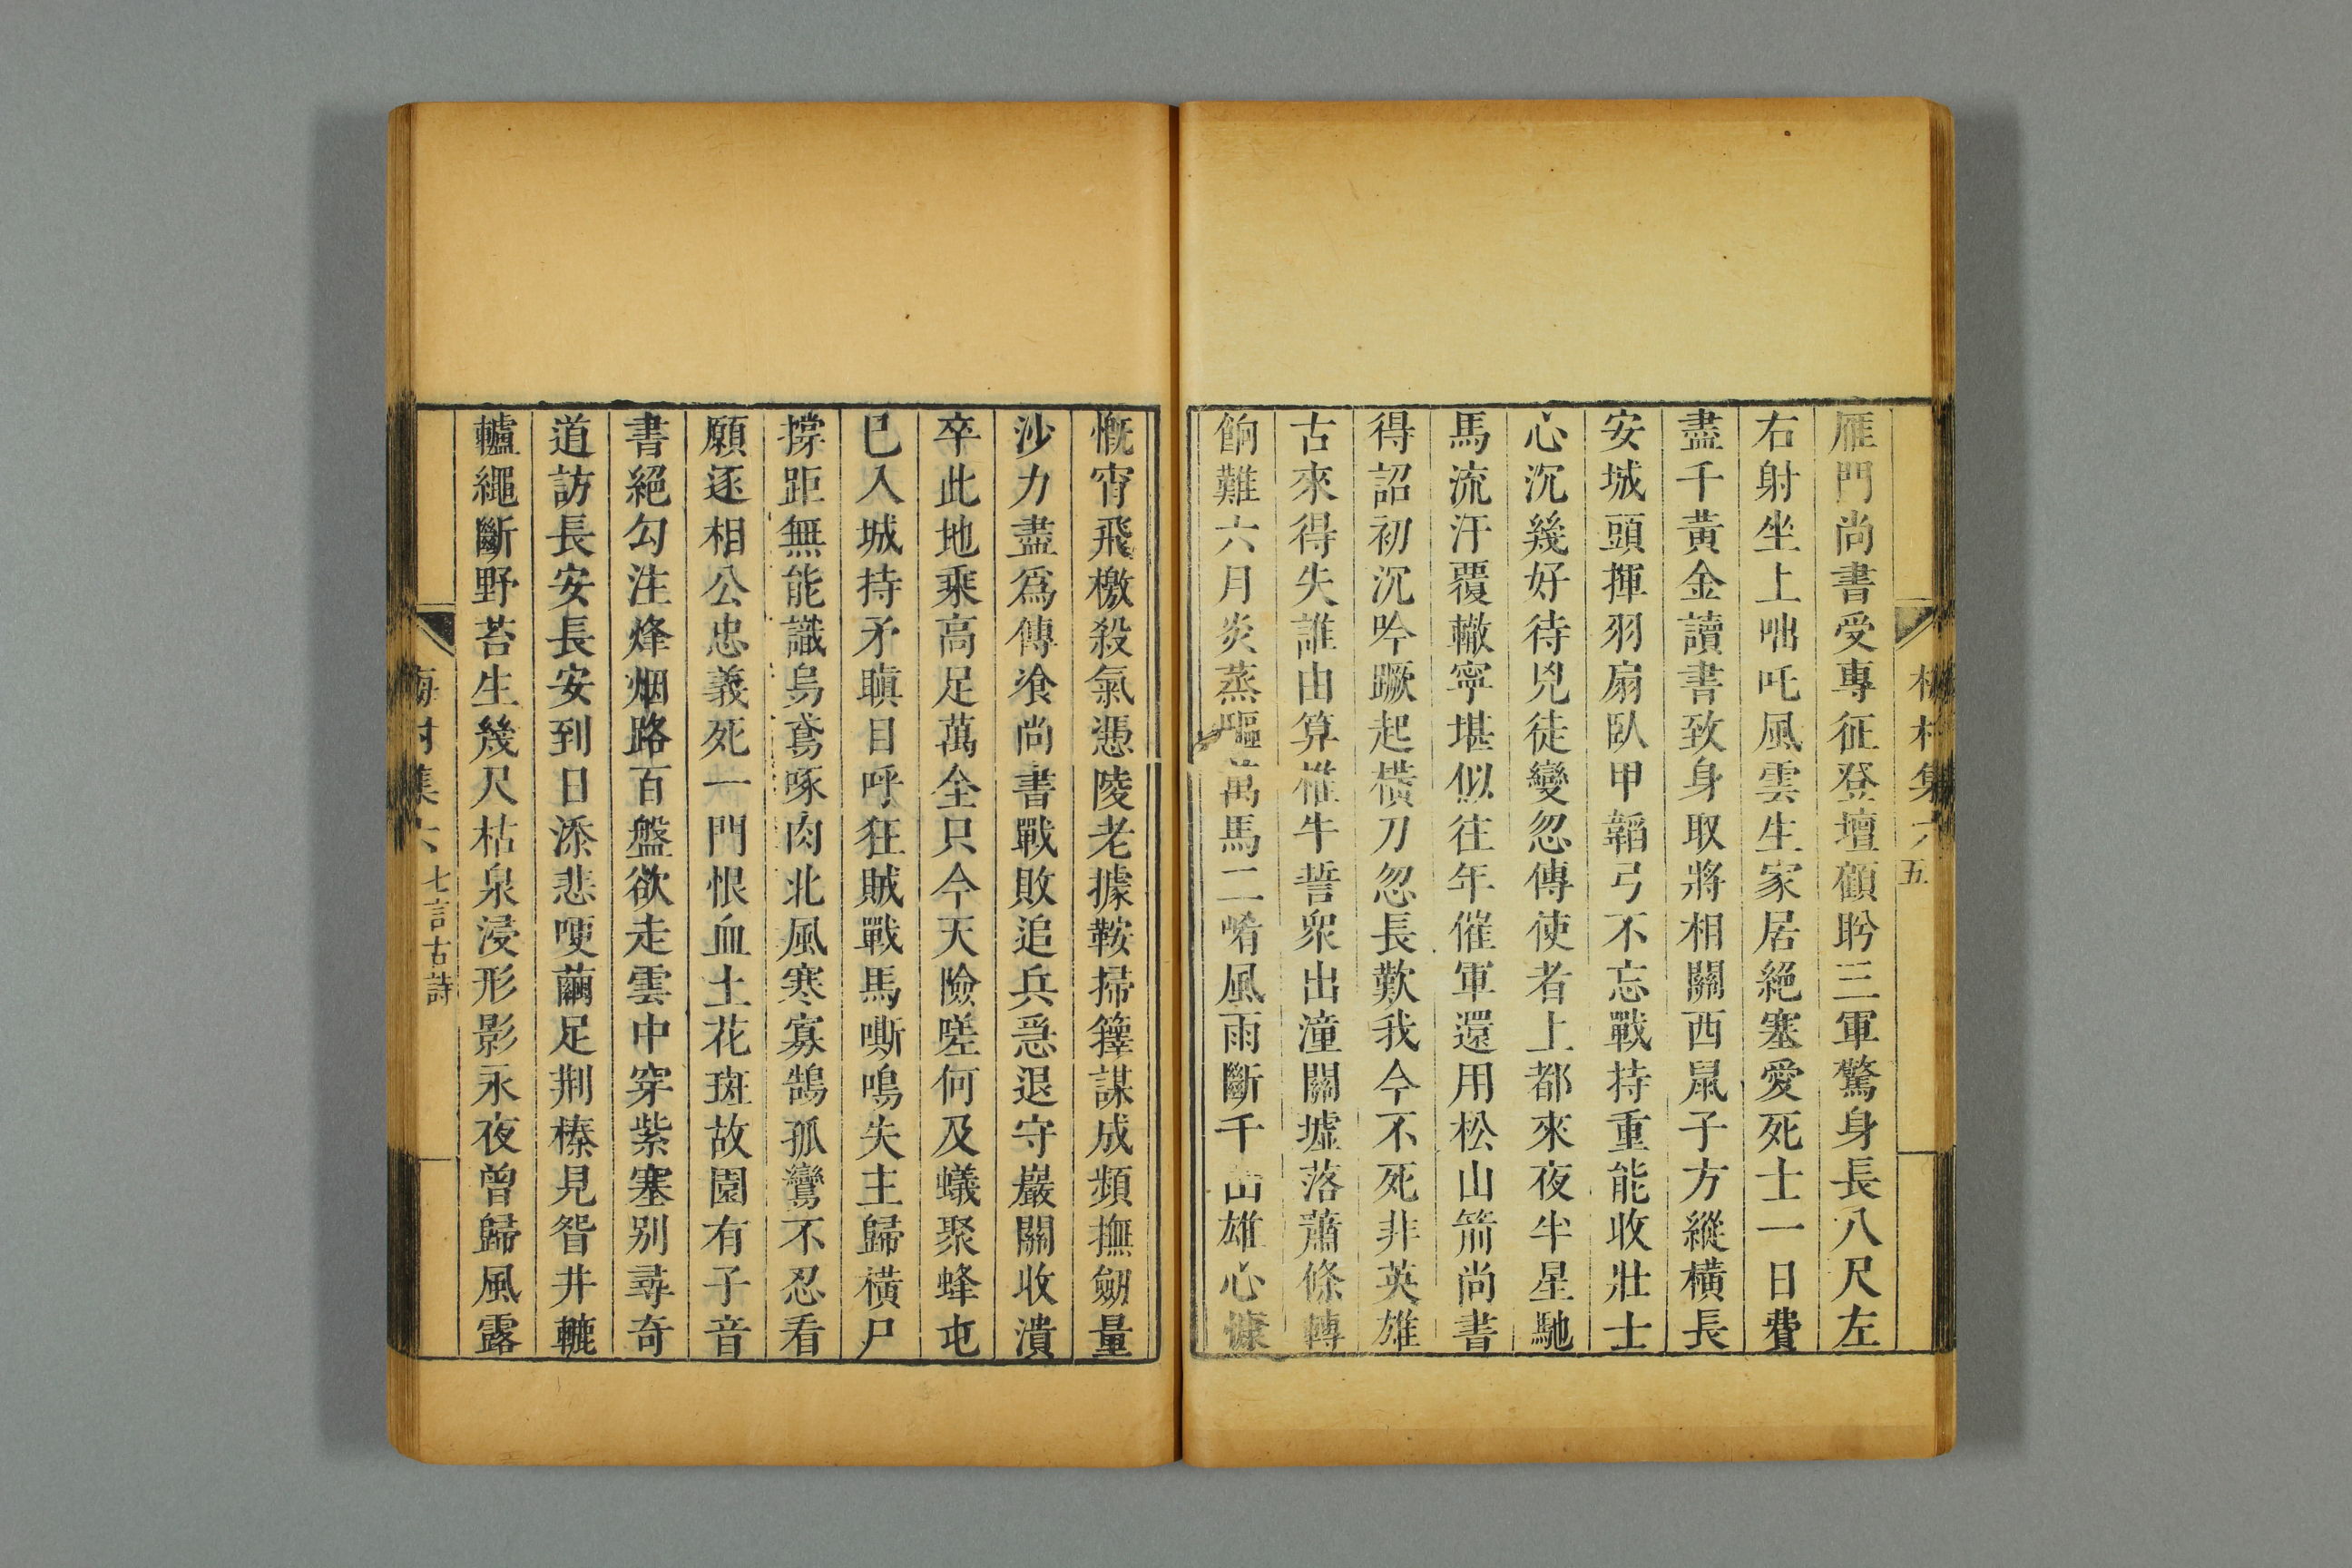 梅村集六 五
雁門尚書受專征登壇顧盼三軍驚身長八尺左
右射坐上咄吒風雲生家居絕塞愛死士一日費
盡千黃金讀書致身取將相關西鼠子方縱橫長
安城頭揮羽扇臥甲韜弓不忘戰持重能收壯士
心沉幾好待兇徒變忽傳使者上都來夜半星馳
馬流汗覆轍寧堪似往年催軍還用松山箭尚書
得詔初沉吟蹶起橫刀忽長歎我今不死非英雄
古來得失誰由算椎牛誓衆出潼關墟落蕭條轉
餉難六月炎蒸驅萬馬二崤風雨斷千山雄心慷
慨宵飛檄殺氣憑陵老據鞍掃籜謀成頻撫劒量
沙力盡爲傳湌尚書戰敗追兵急退守巖關收潰
卒此地乘高足萬全只今天險嗟何及蟻聚蜂屯
已入城持矛瞋目呼狂賊戰馬嘶鳴失主歸橫尸
撐距無能識烏鳶啄肉北風寒寡鵠孤鸞不忍看
願逐相公忠義死一門恨血土花斑故園有子音
書絕勾注烽烟路百盤欲走雲中穿紫塞别尋奇
道訪長安長安到日添悲哽繭足荆榛見眢井轆
轤繩斷野苔生幾尺枯泉浸形影永夜曾歸風露
梅村集六 七言古詩